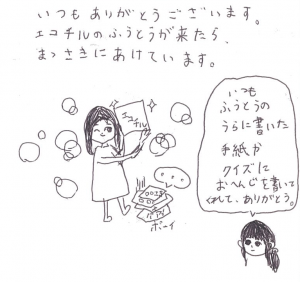 いつもありがとうございます。
エコチルのふうとうが来たら、
まっさきにあけています。
エコチル
ポーイ
いつも
ふうとうの
うらに書いた
手紙か
クイズに
おへんじを書いて
くれて、ありがとう。